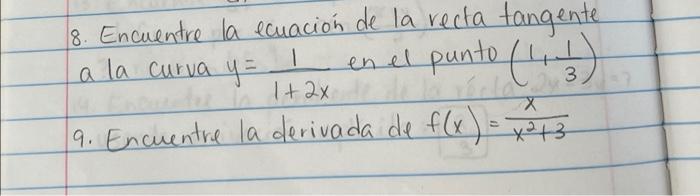 8. Encuentre la ecuación de la recta tangente
a la curva y = 1/(1+2x) en el punto (1, 1/3)
9. Encuentre la derivada de f(x) = x/(x²+3)